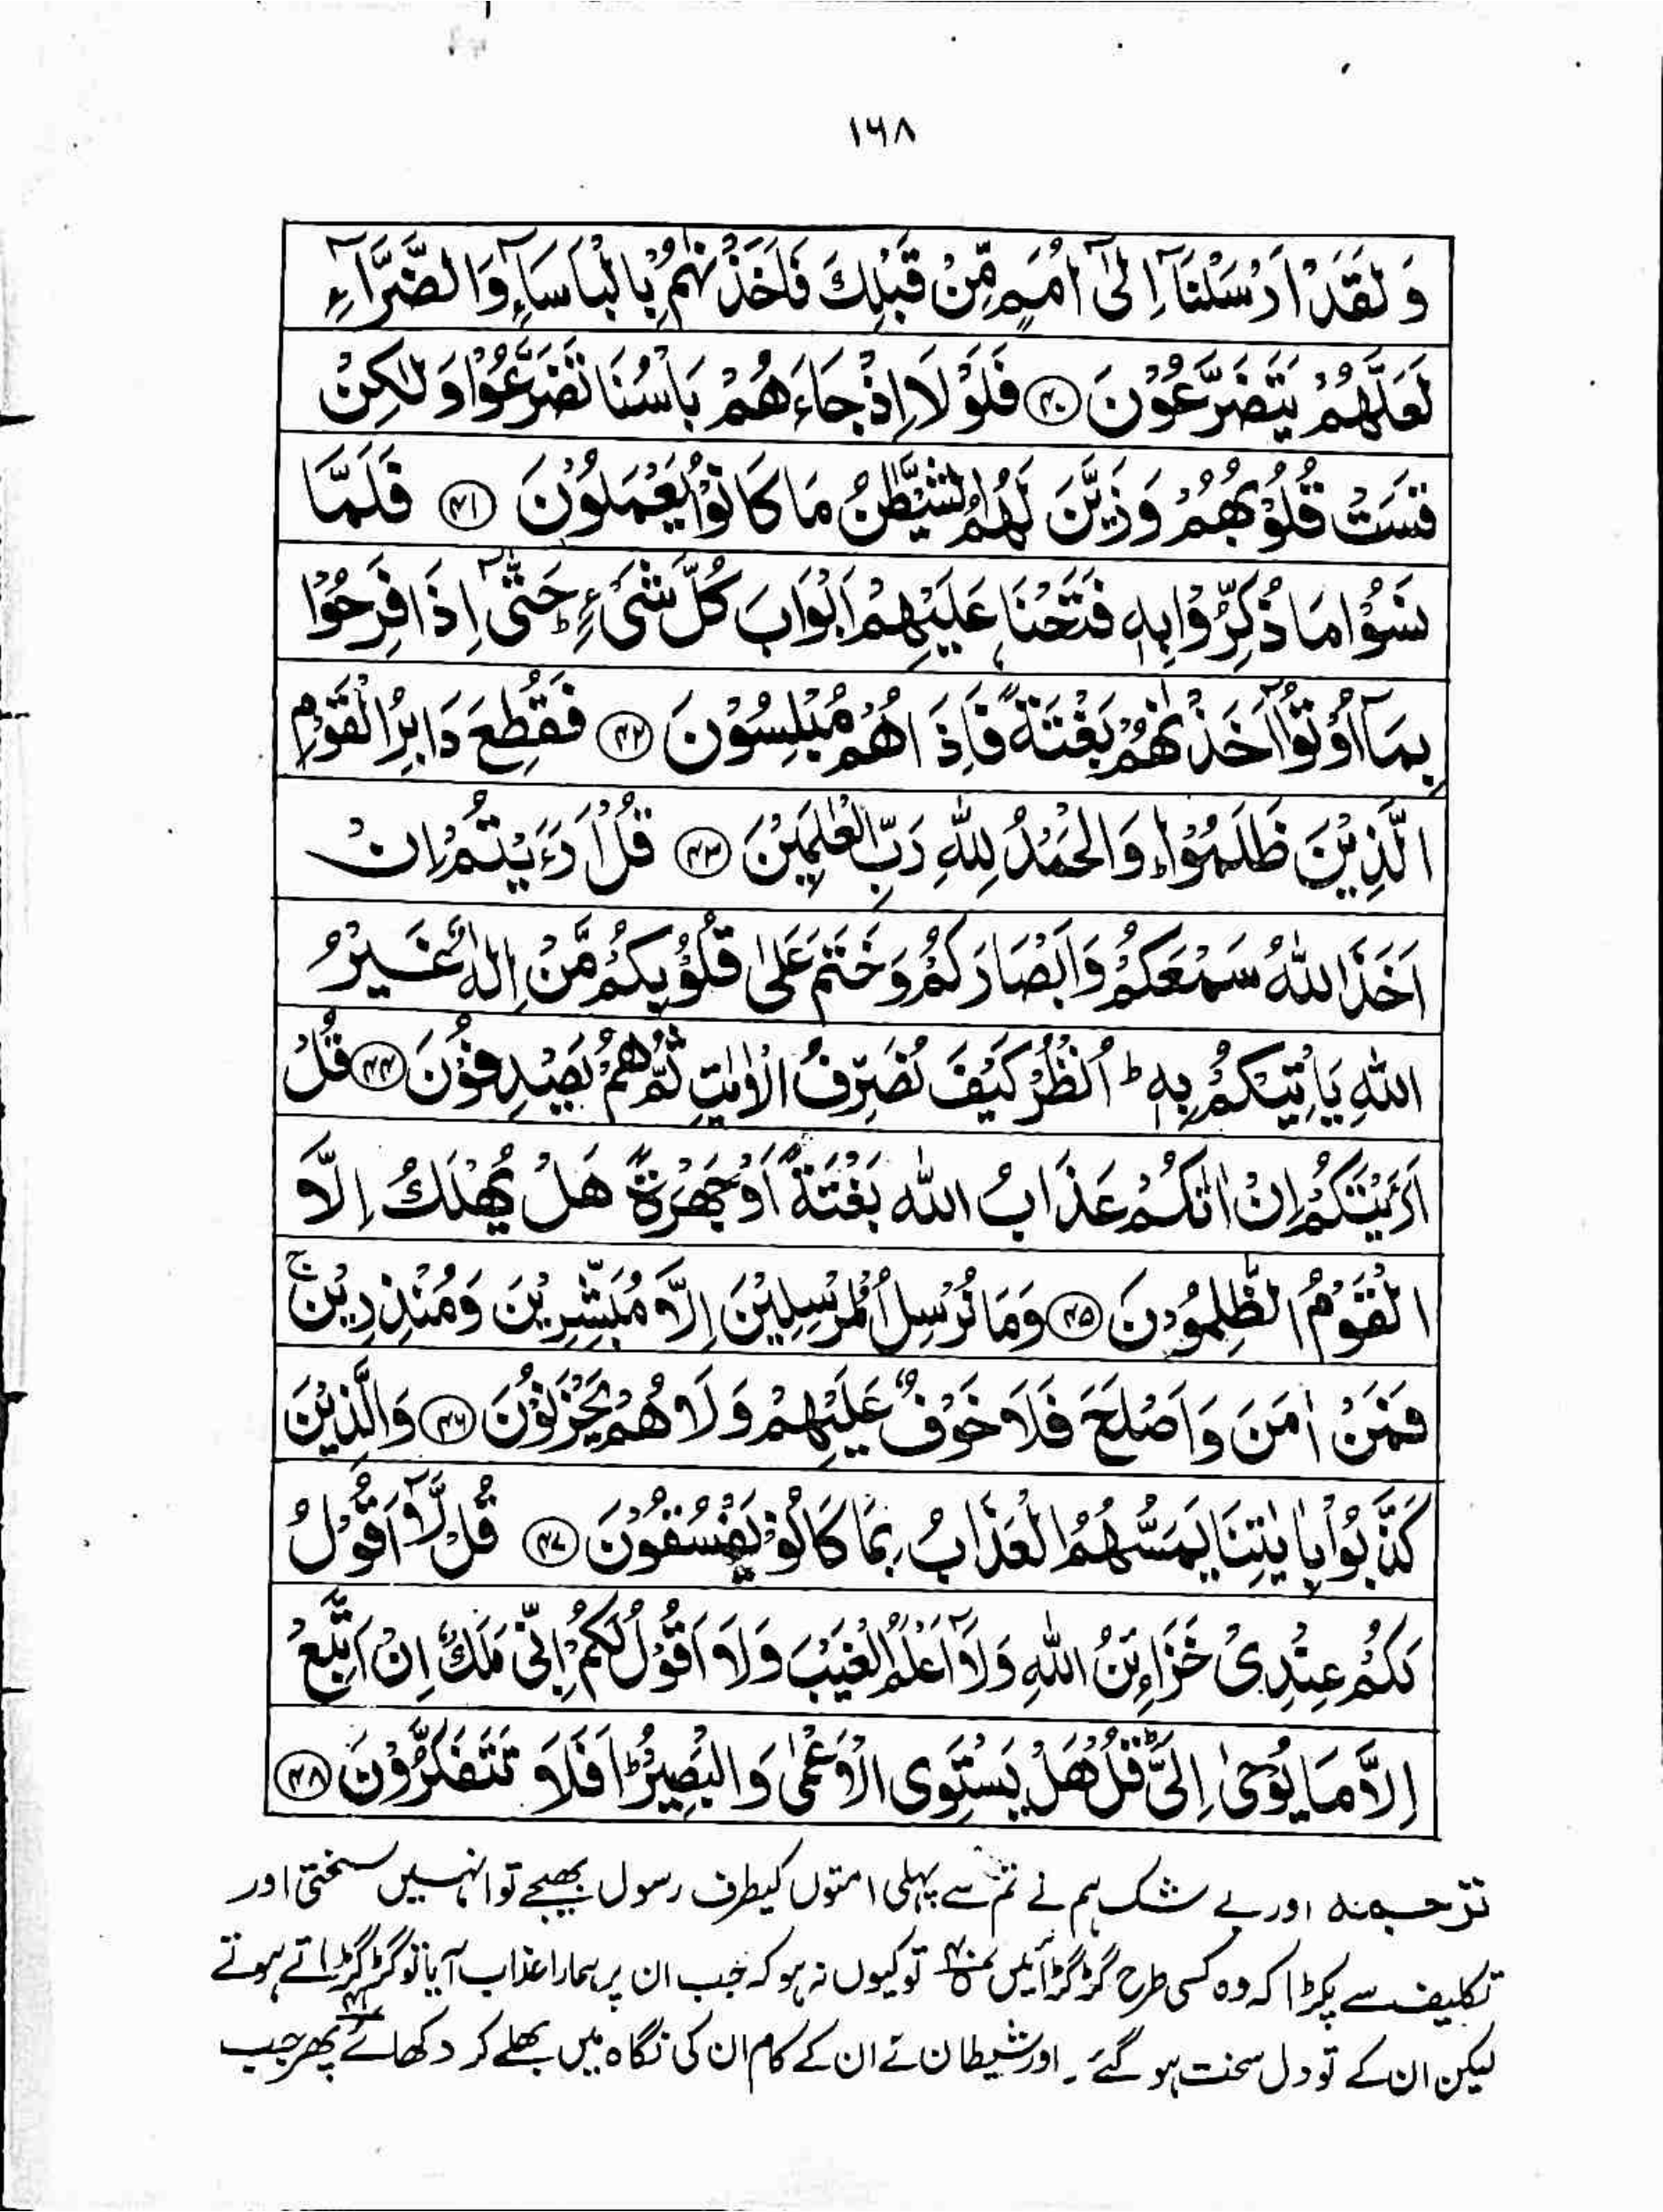 ۱۶۸
وَلَقَدْ اَرْسَلْنَآ اِلٰىٓ اُمَمٍ مِّنْ قَبْلِكَ فَاَخَذْنٰهُمْ بِالْبَاْسَآءِ وَالضَّرَّآءِ
لَعَلَّهُمْ يَتَضَرَّعُوْنَ ﴿۴۰﴾ فَلَوْلَا اِذْ جَاءَهُمْ بَاْسُنَا تَضَرَّعُوْا وَلٰكِنْ
قَسَتْ قُلُوْبُهُمْ وَزَيَّنَ لَهُمُ الشَّيْطٰنُ مَا كَانُوْا يَعْمَلُوْنَ ﴿۴۱﴾ فَلَمَّا
نَسُوْا مَا ذُكِّرُوْا بِهٖ فَتَحْنَا عَلَيْهِمْ اَبْوَابَ كُلِّ شَىْءٍ ؕ حَتّٰىٓ اِذَا فَرِحُوْا
بِمَآ اُوْتُوْٓا اَخَذْنٰهُمْ بَغْتَةً فَاِذَا هُمْ مُبْلِسُوْنَ ﴿۴۲﴾ فَقُطِعَ دَابِرُ الْقَوْمِ
الَّذِيْنَ ظَلَمُوْا ؕ وَالْحَمْدُ لِلّٰهِ رَبِّ الْعٰلَمِيْنَ ﴿۴۳﴾ قُلْ اَرَءَيْتُمْ اِنْ
اَخَذَ اللّٰهُ سَمْعَكُمْ وَاَبْصَارَكُمْ وَخَتَمَ عَلٰى قُلُوْبِكُمْ مَّنْ اِلٰهٌ غَيْرُ
اللّٰهِ يَاْتِيْكُمْ بِهٖ ؕ اُنْظُرْ كَيْفَ نُصَرِّفُ الْاٰيٰتِ ثُمَّ هُمْ يَصْدِفُوْنَ ﴿۴۴﴾ قُلْ
اَرَءَيْتَكُمْ اِنْ اَتٰكُمْ عَذَابُ اللّٰهِ بَغْتَةً اَوْ جَهْرَةً هَلْ يُهْلَكُ اِلَّا
الْقَوْمُ الظّٰلِمُوْنَ ﴿۴۵﴾ وَمَا نُرْسِلُ الْمُرْسَلِيْنَ اِلَّا مُبَشِّرِيْنَ وَمُنْذِرِيْنَ ۚ
فَمَنْ اٰمَنَ وَاَصْلَحَ فَلَا خَوْفٌ عَلَيْهِمْ وَلَا هُمْ يَحْزَنُوْنَ ﴿۴۶﴾ وَالَّذِيْنَ
كَذَّبُوْا بِاٰيٰتِنَا يَمَسُّهُمُ الْعَذَابُ بِمَا كَانُوْا يَفْسُقُوْنَ ﴿۴۷﴾ قُلْ لَّآ اَقُوْلُ
لَكُمْ عِنْدِىْ خَزَاءِنُ اللّٰهِ وَلَآ اَعْلَمُ الْغَيْبَ وَلَا اَقُوْلُ لَكُمْ اِنِّىْ مَلَكٌ اِنْ اَتَّبِعُ
اِلَّا مَا يُوْحٰى اِلَىَّ ؕ قُلْ هَلْ يَسْتَوِى الْاَعْمٰى وَالْبَصِيْرُ ؕ اَفَلَا تَتَفَكَّرُوْنَ ﴿۴۸﴾
ترجمہ اور بے شک ہم نے تم سے پہلی امتوں کیطرف رسول بھیجے تو انہیں سختی اور
تکلیف سے پکڑا کہ وہ کسی طرح گڑگڑائیں ۴۰ تو کیوں نہ ہو کہ جب ان پر ہمارا عذاب آیا تو گڑگڑاتے ہوتے
لیکن ان کے تو دل سخت ہو گئے ۔ اور شیطان نے ان کے کام ان کی نگاہ میں بھلے کر دکھائے ۴۱ پھر جب